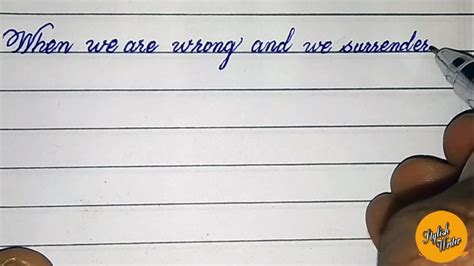 When we are wrong and we surrender,
Stylish
Writer